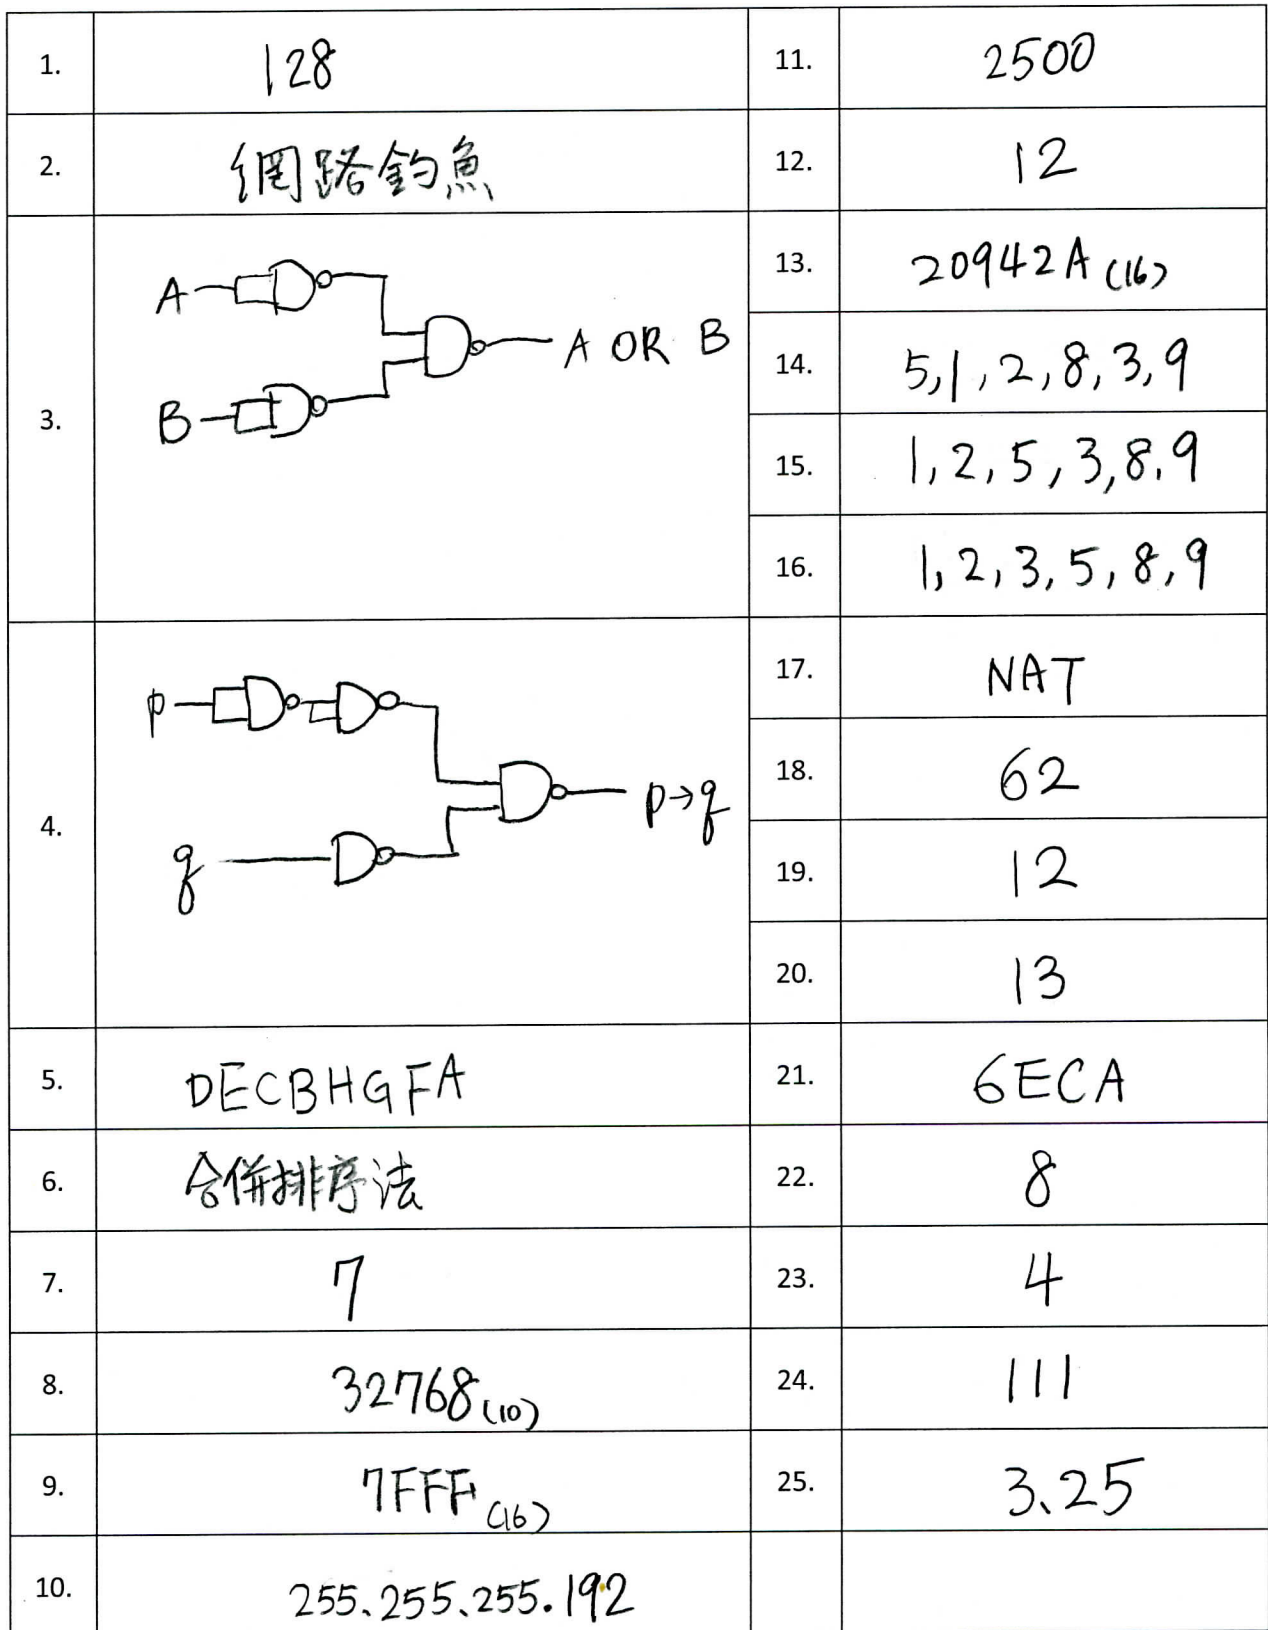 1. 128
2. 網路釣魚
3. A B A OR B
4. p q p→q
5. DECBHGFA
6. 合併排序法
7. 7
8. 32768(10)
9. 7FFF(16)
10. 255.255.255.192
11. 2500
12. 12
13. 20942A(16)
14. 5,1,2,8,3,9
15. 1,2,5,3,8,9
16. 1,2,3,5,8,9
17. NAT
18. 62
19. 12
20. 13
21. 6ECA
22. 8
23. 4
24. 111
25. 3.25